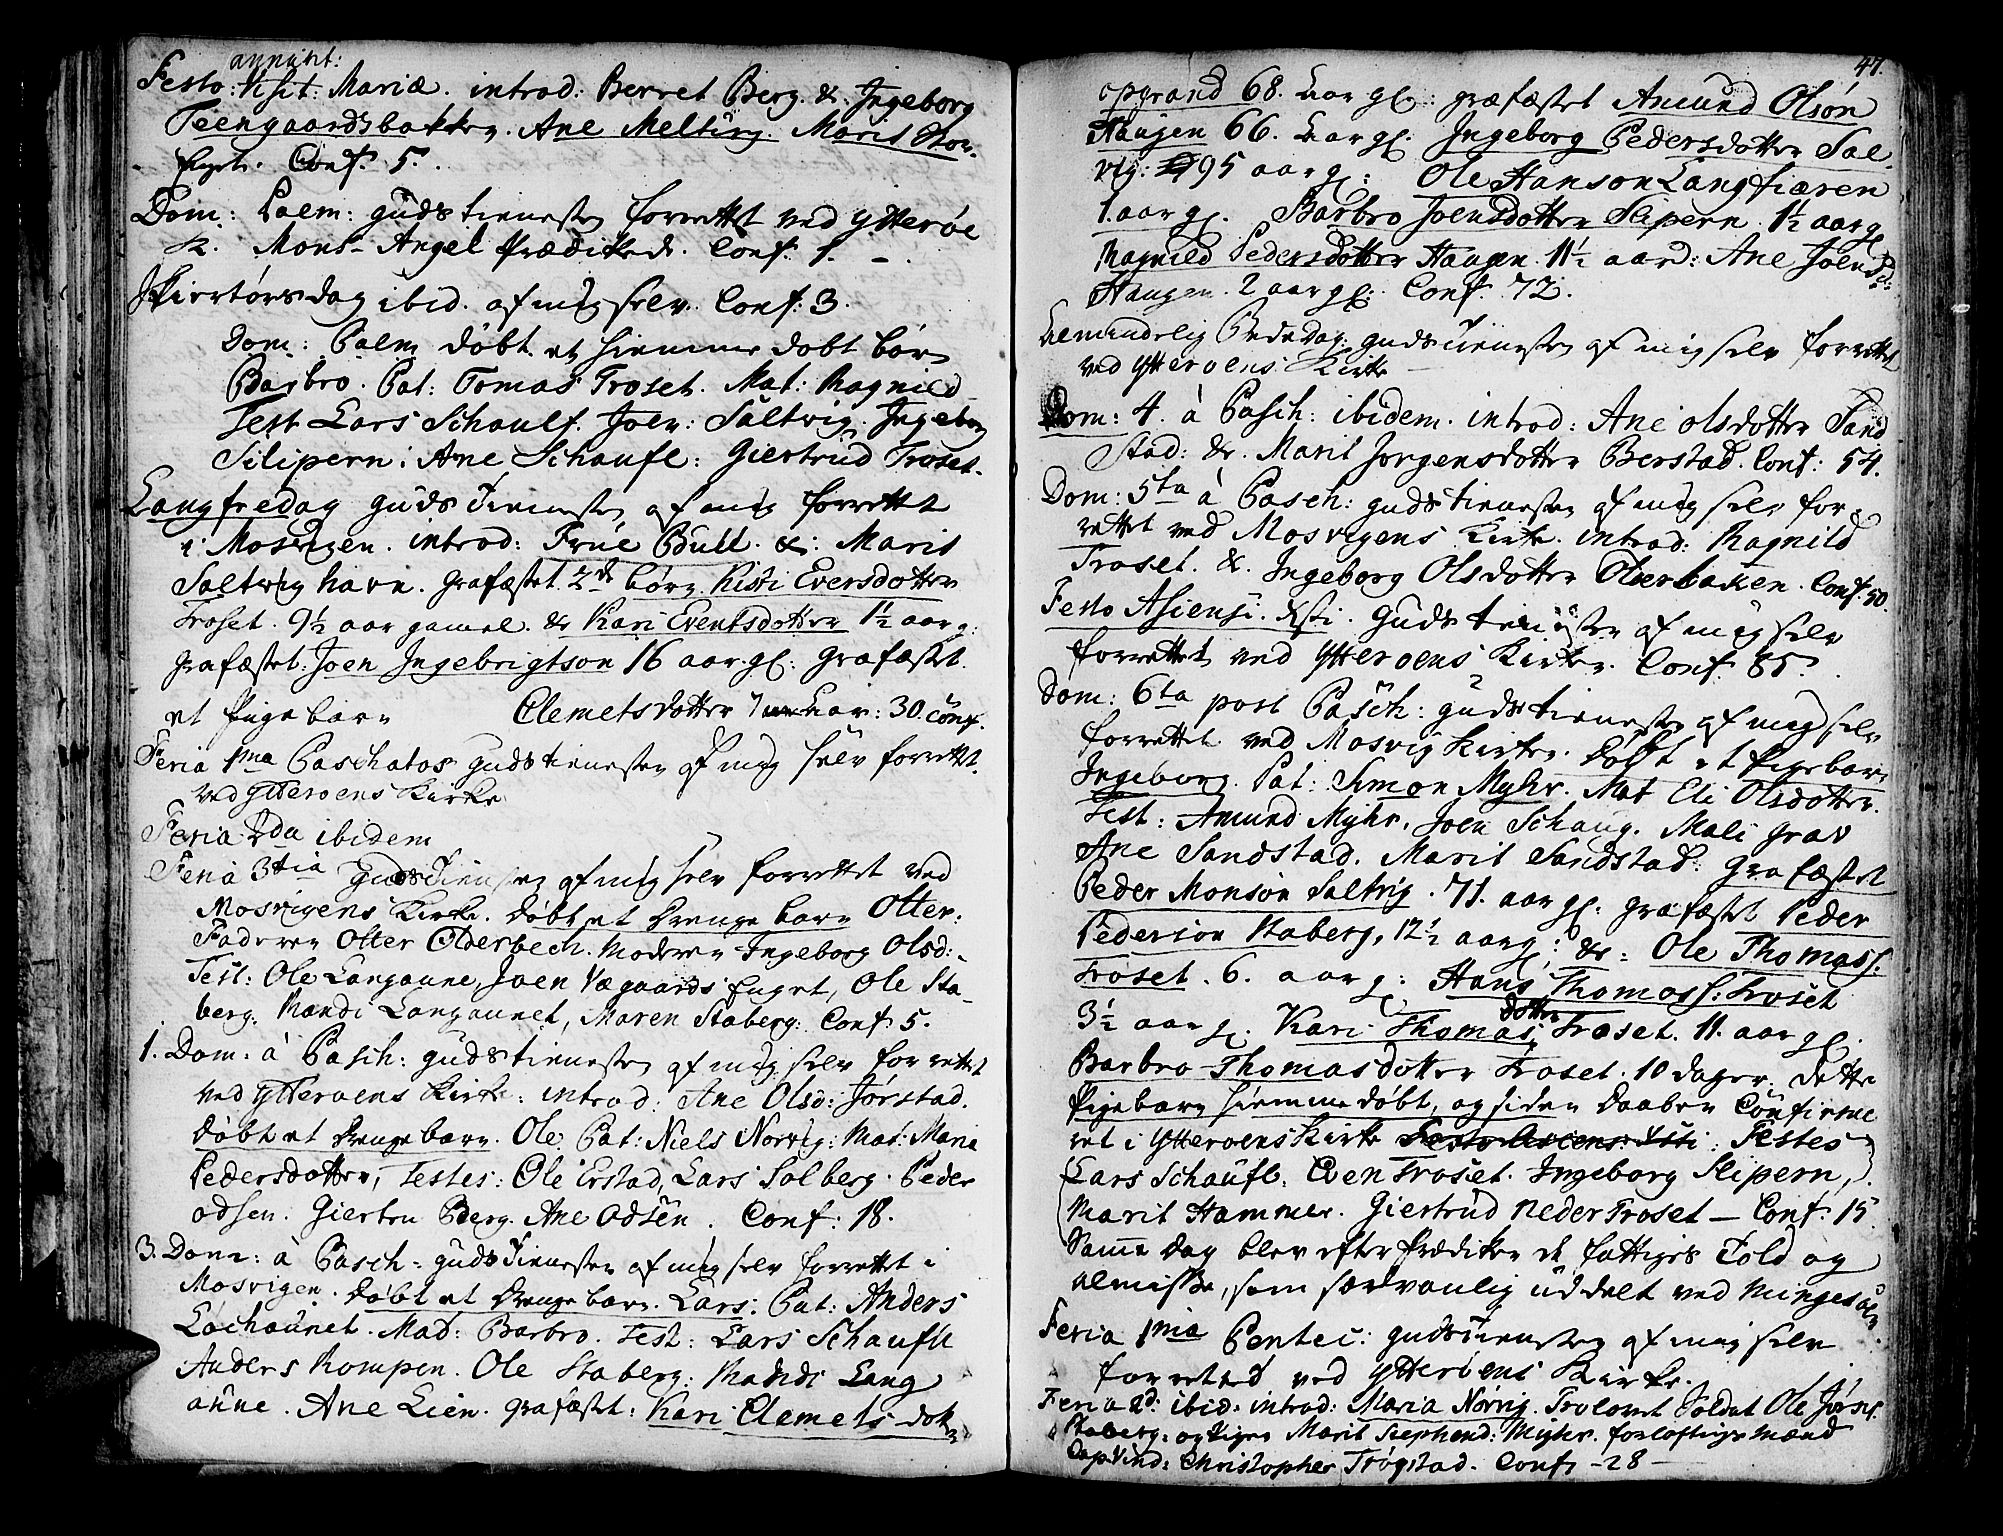 annunt:
Festo: Visit: Mariæ. introd: Berret Berg. &. Ingeborg
Teengaardsbakken. Ane Melting. Marit Stor-
Conf. 5.
Dom: Palm: gudstienesten forrettet ved Ytterøe
K. Mons. Angel Prædikede. Conf. 1.
Skiertórsdag ibid. af mig selv. Conf: 3.
Dom: Palm døbt et hiemme døbt barn
Barbro. Pat: Tomas Troset. Mat: Ragnild
Test Lars Schaufl. Joen: Saltvig. Ingeborg
Slipern: Ane Schaufl: Giertrud Troset.
Langfredag guds Tienesten af mig forrettet
i Mosvigen. introd: Frúe Bull. &: Marit
Saltvig havn. grafæstet 2de børn Kisti Eversdotter
Troset. 9½ aar gamel. & Kari Eventsdotter 1½ aar g:
grafæstet: Joen Ingebrigtson 16 aar. gl: grafæstet
et Pigebarn Clemetsdotter 7 aar: 30. conf.
Feria 1ma Paschatos gudstienesten af mig selv forrettet.
ved Ytterøens Kirke
Feria 2da ibidem
Feria 3tia gudstienesten af mig selv forrettet ved
Mosvigens Kirke. døbt et drenge barn Otter:
Faderen Otter Olderbech. moderen Ingeborg Olsd:
Test: Ole Langaune, Joen Vægaards Enget, Ole Sta-
berg. Mandi Langaunet, Maren Staberg: Conf 5.
1. Dom: á Pasch: gudstienesten af mig selv forrettet
ved Ytterøens Kirke: introd: Ane Olsd: Jørstad.
døbt et drengebarn. Ole. Pat: Niels Norvig: Mat: Maria
Pedersdotter, Testes: Ole Erstad, Lars Solberg. Peder
odsen. Giertru Berg. Ane Odsen. Conf: 18.
3. Dom: á Pasch: guds Tienesten af mig selv forrettet i
Mosvigen. døbt et drengebarn. Lars: Pat: Anders
Løchaúnet. Mad: Barbro. Test: Lars Schaufll
Anders Rompen. Ole Staberg: Mandi Lang
aúne. Ane Lien. grafæstet: Kari Clemets dot
47.
opgrand 68. aar gl: græfæstet Amund Olsøn
Haugen 66. aar gl. Ingeborg Pedersdotter Sal-
vig: 95 aar gl: Ole Hanson Langfiæren
1. aar gl. Barbro Joensdotter Slipern. 1½ aar gl
Ragnild Pedersdotter Haugen. 11½ aar: Ane Joensd:
Haugen. 2 aar gl: Conf. 72.
Almindelig Bededag: gudstienesten af mig selv forrettet
ved Ytteroens Kirke
Dom: 4. á Pasch: ibidem. introd: Ane olsdotter Sand
stad: & Marit Jorgensdotter Berstad. Conf: 54.
Dom: 5ta á Pasch: gudstienesten af mig selv for-
rettet ved Mosvigens Kirke. introd: Ragnild
Troset. &. Ingeborg Olsdotter Olderbaken. Conf. 50.
Festo Asiensi. Xsti. gudstienesten af mig selv
forrettet ved Ytteroens Kirke. Conf. 85.
Dom: 6ta post Pasch: gudstienesten af mig selv
forrettet ved Mosvig Kirke. døbt et Pigebarn
Ingeborg. Pat: Simon Myhr. Mat Eli Olsdotter.
Test: Amund Myhr, Joen Schaug. Mali Grav
Ane Sandstad. Marit Sandstad: grafæstet
Peder Monsøn Saltvig. 71. aar gl: grafæstet Peder
Pederson Staberg, 12½ aar g: &: Ole Thomass.
Troset. 6. aar g: Hans Thomass: Troset
3½ aar gl. Kari Thomasdotter Troset. 11. aar gl.
Barbro Thomasdotter Troset. 10 dager. dette
Pigebarn hiemmedøbt, og siden daaben Confirme
ret i Ytteroens Kirke Festo Asiens: Xsti: Testes
Lars Schaufl: Even Troset. Ingeborg Slipern,
Marit Hammer. Giertrud Neder Troset — Conf. 15
Samme dag blev efter Prædiken de fattiges Told og
almisse, som sædvanlig uddelt ved
Feria 1ma Pentec: gudstienesten af mig selv
forretted ved Ytterøens Kirke.
Feria 2d: ibid: introd: Maria Norvig. Trolovet Soldat Ole Jørs:
Staberg: og Pigen Marit Stephensd: Myhr. forloftigs Mænd
Cap. Vind: Christopher Trøgstad. Conf. - 28 -